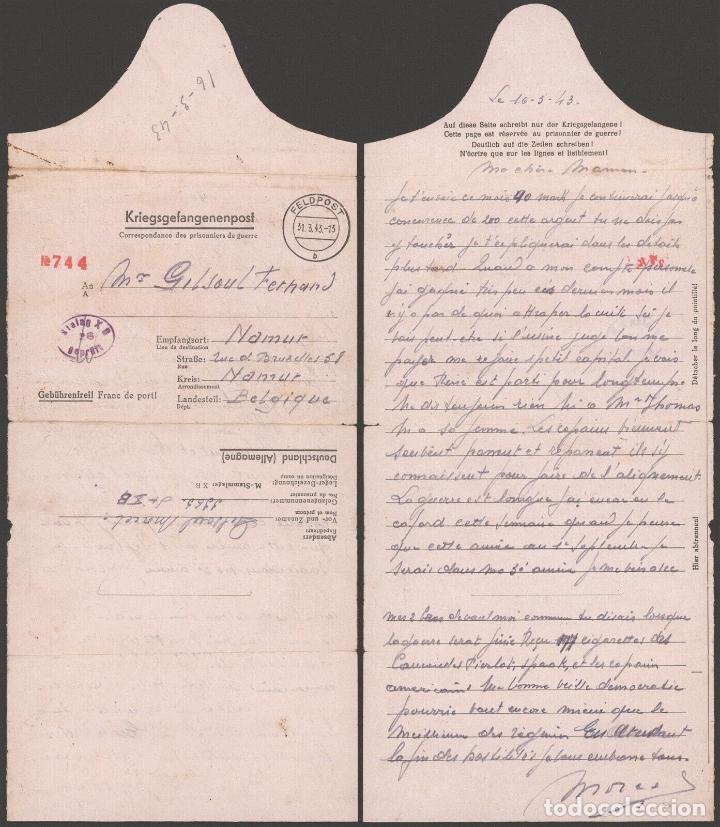 16-3-43
Kriegsgefangenenpost
Correspondance des prisonniers de guerre
FELDPOST
31.3.43.-13
b
№744
An
A
Mr Gilsoul Fernand
Stalag X B
Geprüft
Empfangsort: Namur
Lieu de destination
Straße: Rue de Bruxelles 58
Rue
Kreis: Namur
Arrondissement
Landesteil: Belgique
Dépt.
Gebührenfrei! Franc de port!
Deutschland (Allemagne)
M.-Stammlager X B
Lager-Bezeichnung:
Désignation du camp
Gefangenennummer
No. du prisonnier
Vor- und Zuname:
Nom et prénom
Gilsoul Marcel
Absender:
Expéditeur:
Le 16-3-43.
Auf diese Seite schreibt nur der Kriegsgefangene!
Cette page est réservée au prisonnier de guerre!
Deutlich auf die Zeilen schreiben!
N'écrire que sur les lignes et lisiblement!
Ma chère Maman.
Je t'envoie ce mois 40 mark je continuerai jusqu'à
concurence de 200 cette argent tu ne dois pas
y toucher je t'expliquerai dans les détails
plus tard Quand a mon compte personel
j'ai gagné très peu ces derniers mois il
n'y a pas de quoi attraper la cuite si je
fais peut-être si l'usine juge bon me
payer me refaire petit capital je vois
que René est parti pour longtemps
ne dis toujours rien ni a Mr Thomas
ni a sa femme. Les copains
souvent pensent et ils s'y
connaissent pour faire de l'alignement.
La guerre est longue j'ai encor eu le
cafard cette semaine quand je pense
que cette année au 1e septembre je
serais dans ma 30e année je me vois avec
mes 2 bras devant moi comme tu disais lorsque
la guerre serat finie Reçu cigarettes des
Camarades Pierlot, Spaak, et les copains
americains Ma bonne vieille democratie
pourrie vaut encore mieux que le
meilleur des régimes En attendant
la fin des hostilités je vous embrasse tous.
Marcel
Détacher le long du pointillé!
Hier abtrennen!
todocoleccion